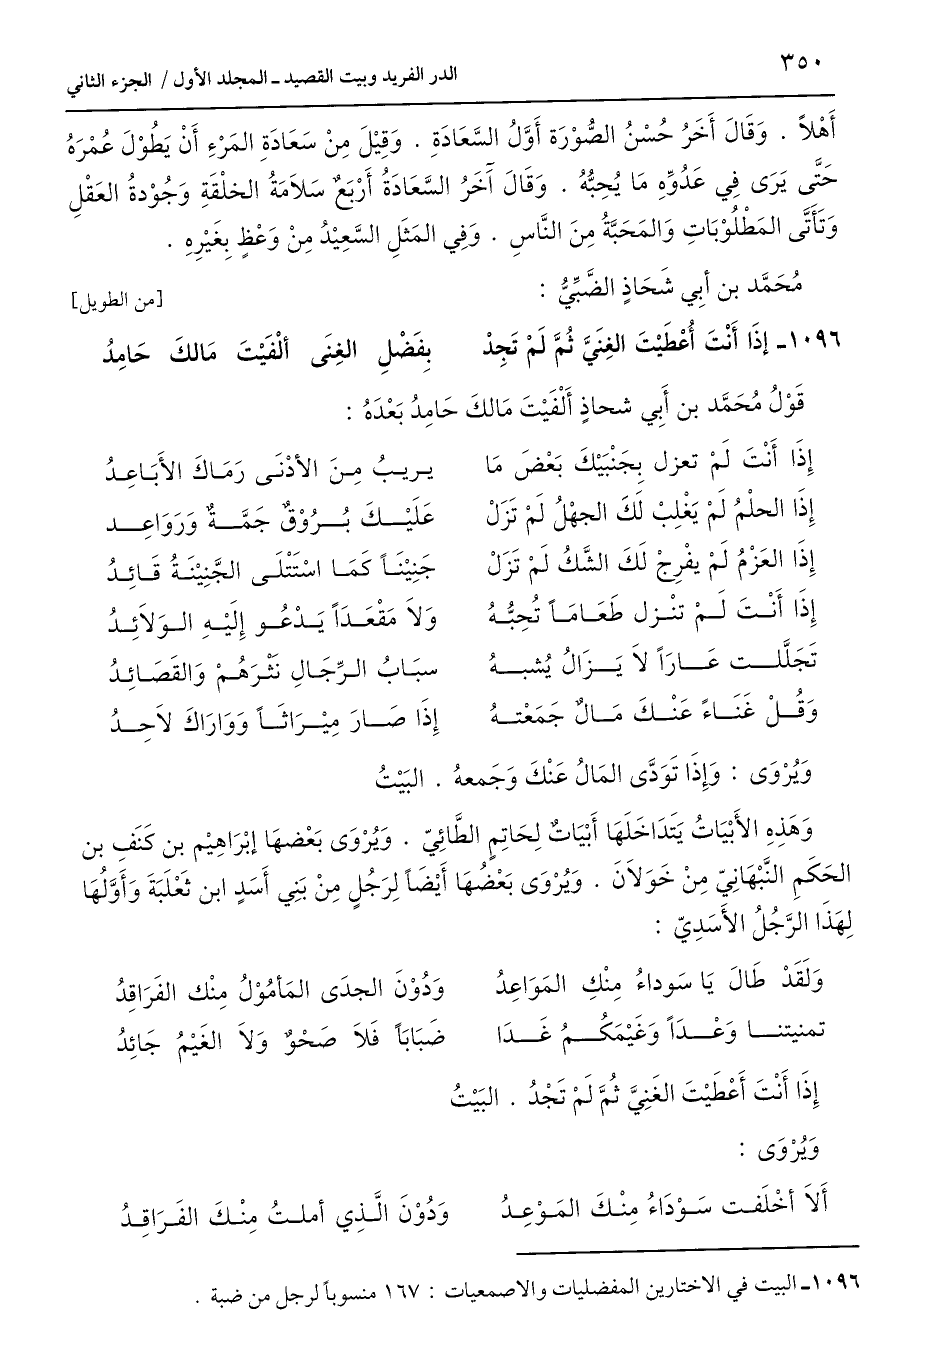 ٣٥٠
الدر الفريد وبيت القصيد ـ المجلد الأول / الجزء الثاني
أَهْلاً . وَقَالَ أَخَرُ حُسْنُ الصُّوْرَة أَوَّلُ السَّعَادَةِ . وَقِيْلَ مِنْ سَعَادَةِ المَرْءِ أَنْ يَطُوْلَ عُمْرَهُ
حَتَّى يَرَى فِي عَدُوِّهِ مَا يُحِبُّهُ . وَقَالَ آخَرُ السَّعَادَةُ أَرْبَعٌ سَلاَمَةُ الخلْقَةِ وَجُوْدةُ العَقْلِ
وَتَأَتَّى المَطْلُوْبَاتِ وَالمَحَبَّةُ مِنَ النَّاسِ . وَفِي المَثَلِ السَّعِيْدُ مِنْ وَعَظٍ بِغَيْرِهِ .
مُحَمَّد بن أبي شَحَاذٍ الضَّبِّيُّ : [من الطويل]
١٠٩٦ـ إذَا أَنْتَ أُعْطِيْتَ الغِنَيَّ ثُمَّ لَمْ تَجِدْ بِفَضْلِ الغِنَى ألْفَيْتَ مَالكَ حَامِدُ
قَوْلُ مُحَمَّد بن أَبي شحاذٍ أَلْفَيْتَ مَالكَ حَامِدُ بَعْدَهُ :
إذَا أَنْتَ لَمْ تعزل بِجَنْبَيْكَ بَعْضَ مَا يريبُ مِنَ الأدْنَى رَمَاكَ الأبَاعِدُ
إذَا الحلْمُ لَمْ يَغْلِبْ لَكَ الجهْلُ لَمْ تَزَلْ عَلَيْكَ بُرُوْقٌ جَمَّةٌ وَرَوَاعِد
إذَا العَزْمُ لَمْ يفْرِجْ لَكَ الشَّكُ لَمْ تَزَلْ جَنِيْنَاً كَمَا اسْتَتْلَى الجَّنِيْنَةُ قَائِدُ
إذَا أَنْتَ لَمْ تنْزل طَعَامَاً تُحِبُّهُ وَلاَ مَقْعَدَاً يَدْعُو إلَيْهِ الوَلاَئِدُ
تجَلَّلت عَارَاً لاَ يَزَالُ يُشبهُ سبَابُ الرِّجَالِ نَثْرَهُمْ وَالقَصَائدُ
وَقُلْ غَنَاءً عَنْكَ مَالٌ جَمَعْتهُ إذَا صَارَ مِيْرَاثَاً وَوَارَاكَ لاَحِدُ
وَيُرْوَى : وَإذَا تَوَدَّى المَالُ عَنْكَ وَجَمعهُ . البَيْتُ
وَهَذِهِ الأبْيَاتُ يَتَدَاخَلَهَا أَبْيَاتٌ لِحَاتِمٍ الطَّائِيّ . وَيُرْوَى بَعْضهَا إبْرَاهِيْم بن كَنَفٍ بن
الحَكَمِ النَّبْهَانِيّ مِنْ خَوَلاَنَ . وَيُرْوَى بَعْضُهَا أَيْضَاً لِرَجُلٍ مِنْ بَنِي أَسَدٍ ابن ثَعْلَبَةَ وَأَوَّلُهَا
لِهَذَا الرَّجُلُ الأَسَدِيّ :
وَلَقَدْ طَالَ يَا سَوداءُ مِنْكِ المَوَاعِدُ وَدُوْنَ الجدَى المَأمُوْلُ مِنْك الفَرَاقِدُ
تمنيتنا وَعْدَاً وَغَيْمَكُمُ غَدَا ضَبَابَاً فَلاَ صَحْوٌ وَلاَ الغَيْمُ جَائِدُ
إذَا أَنْتَ أَعْطَيْتَ الغَنِيَّ ثُمَّ لَمْ تَجْدُ . البَيْتُ
وَيُرْوَى :
أَلاَ أخْلَفت سَوْدَاءُ مِنْكَ المَوْعِدُ وَدُوْنَ الَّذِي أملتُ مِنْكَ الفَرَاقِدُ
١٠٩٦ـ البيت في الاختارين المفضليات والاصمعيات : ١٦٧ منسوباً لرجل من ضبة .